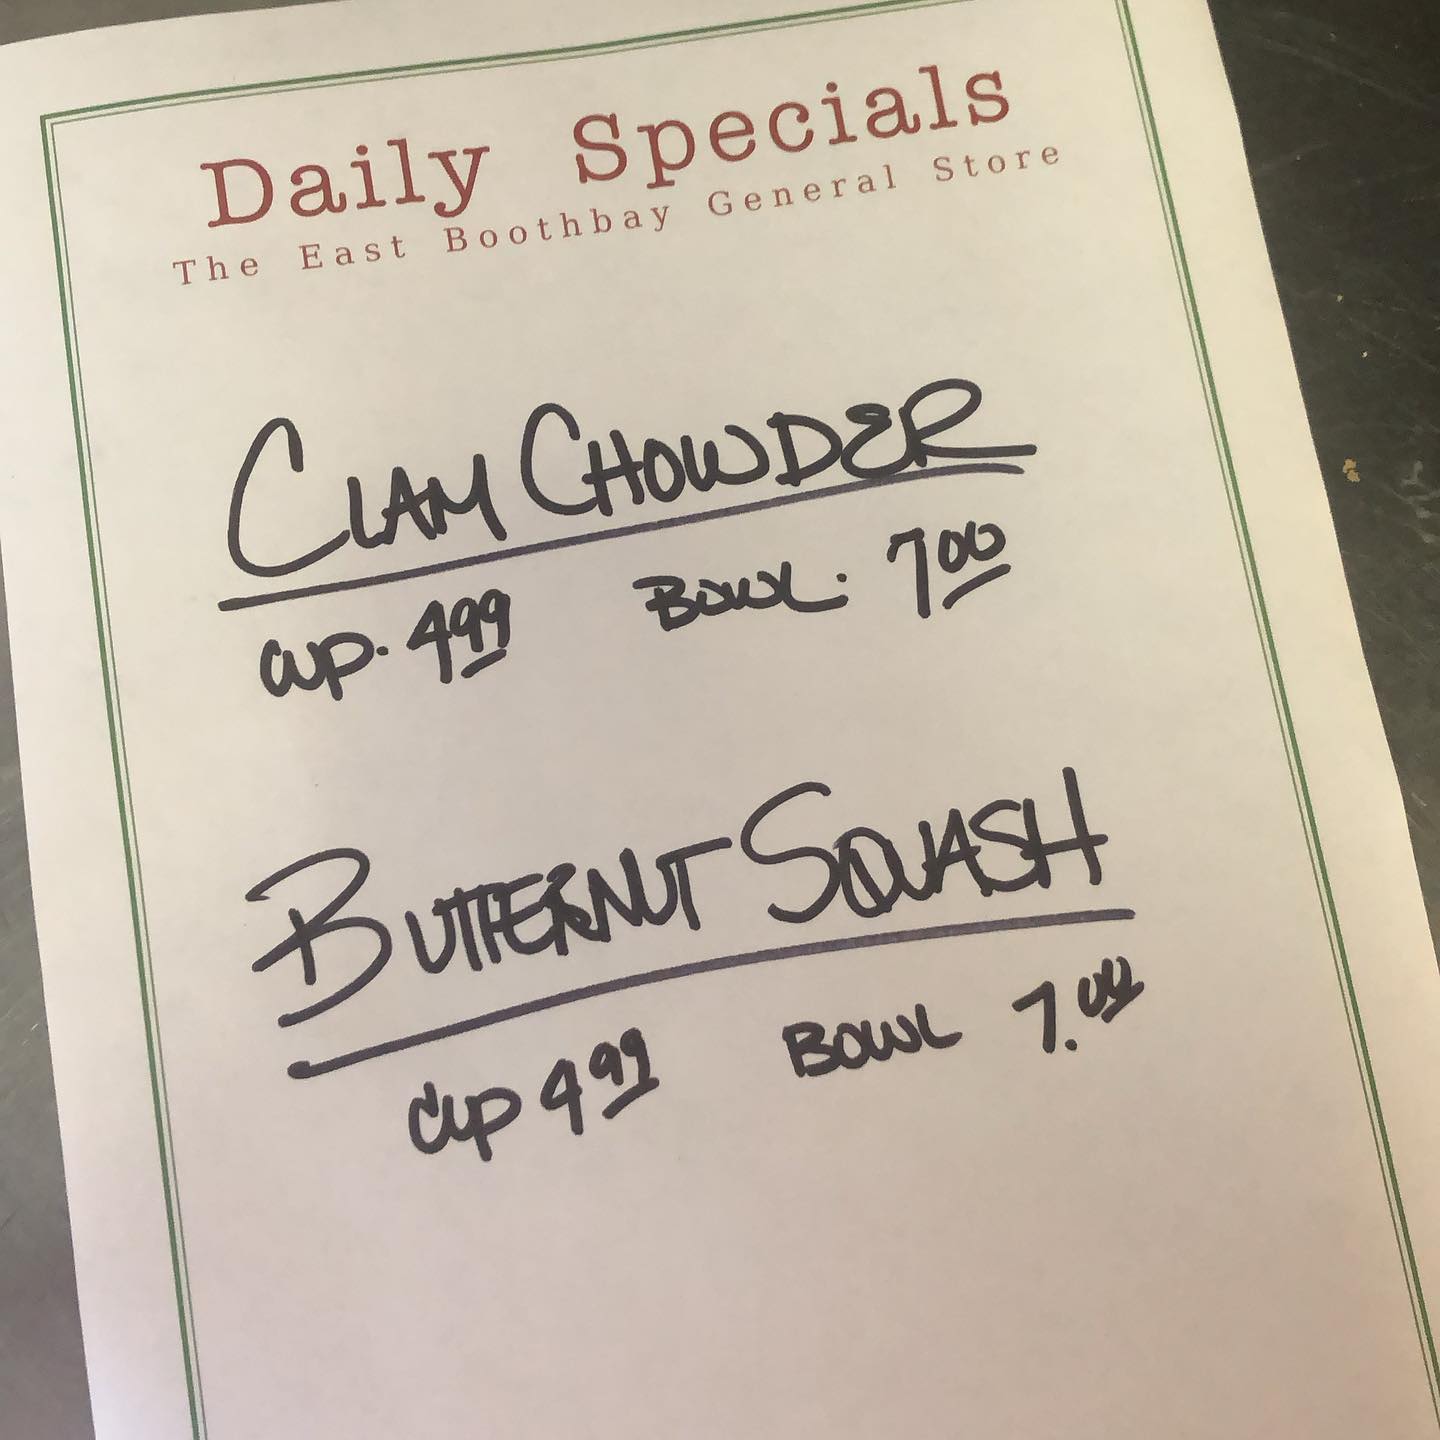 Daily Specials
The East Boothbay General Store
CLAM CHOWDER
CUP. 4.99 BOWL. 7.00
BUTTERNUT SQUASH
CUP 4.99 BOWL 7.00